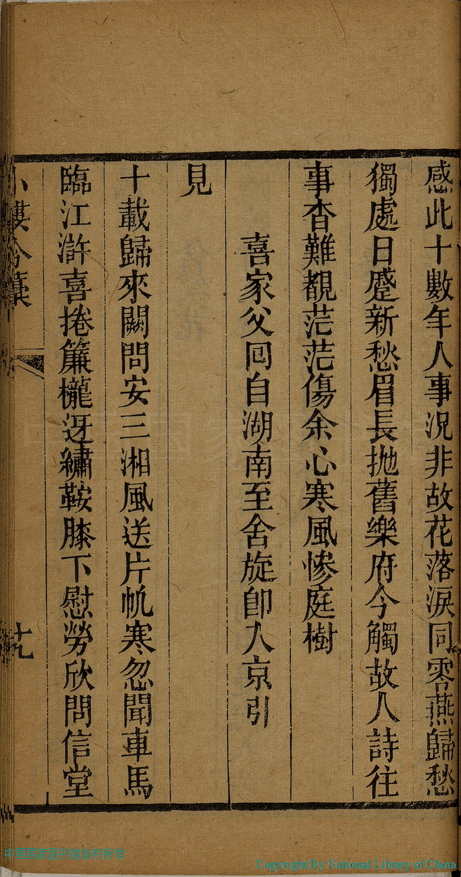 感此十數年人事況非故花落淚同零燕歸愁
獨處日蹙新愁眉長拋舊樂府今觸故人詩往
事杳難覩茫茫傷余心寒風慘庭樹
喜家父囘自湖南至舍旋卽入京引
見
十載歸來闕問安三湘風送片帆寒忽聞車馬
臨江滸喜捲簾櫳迓繡鞍膝下慰勞欣問信堂
小樓吟藁
Copyright by National Library of China